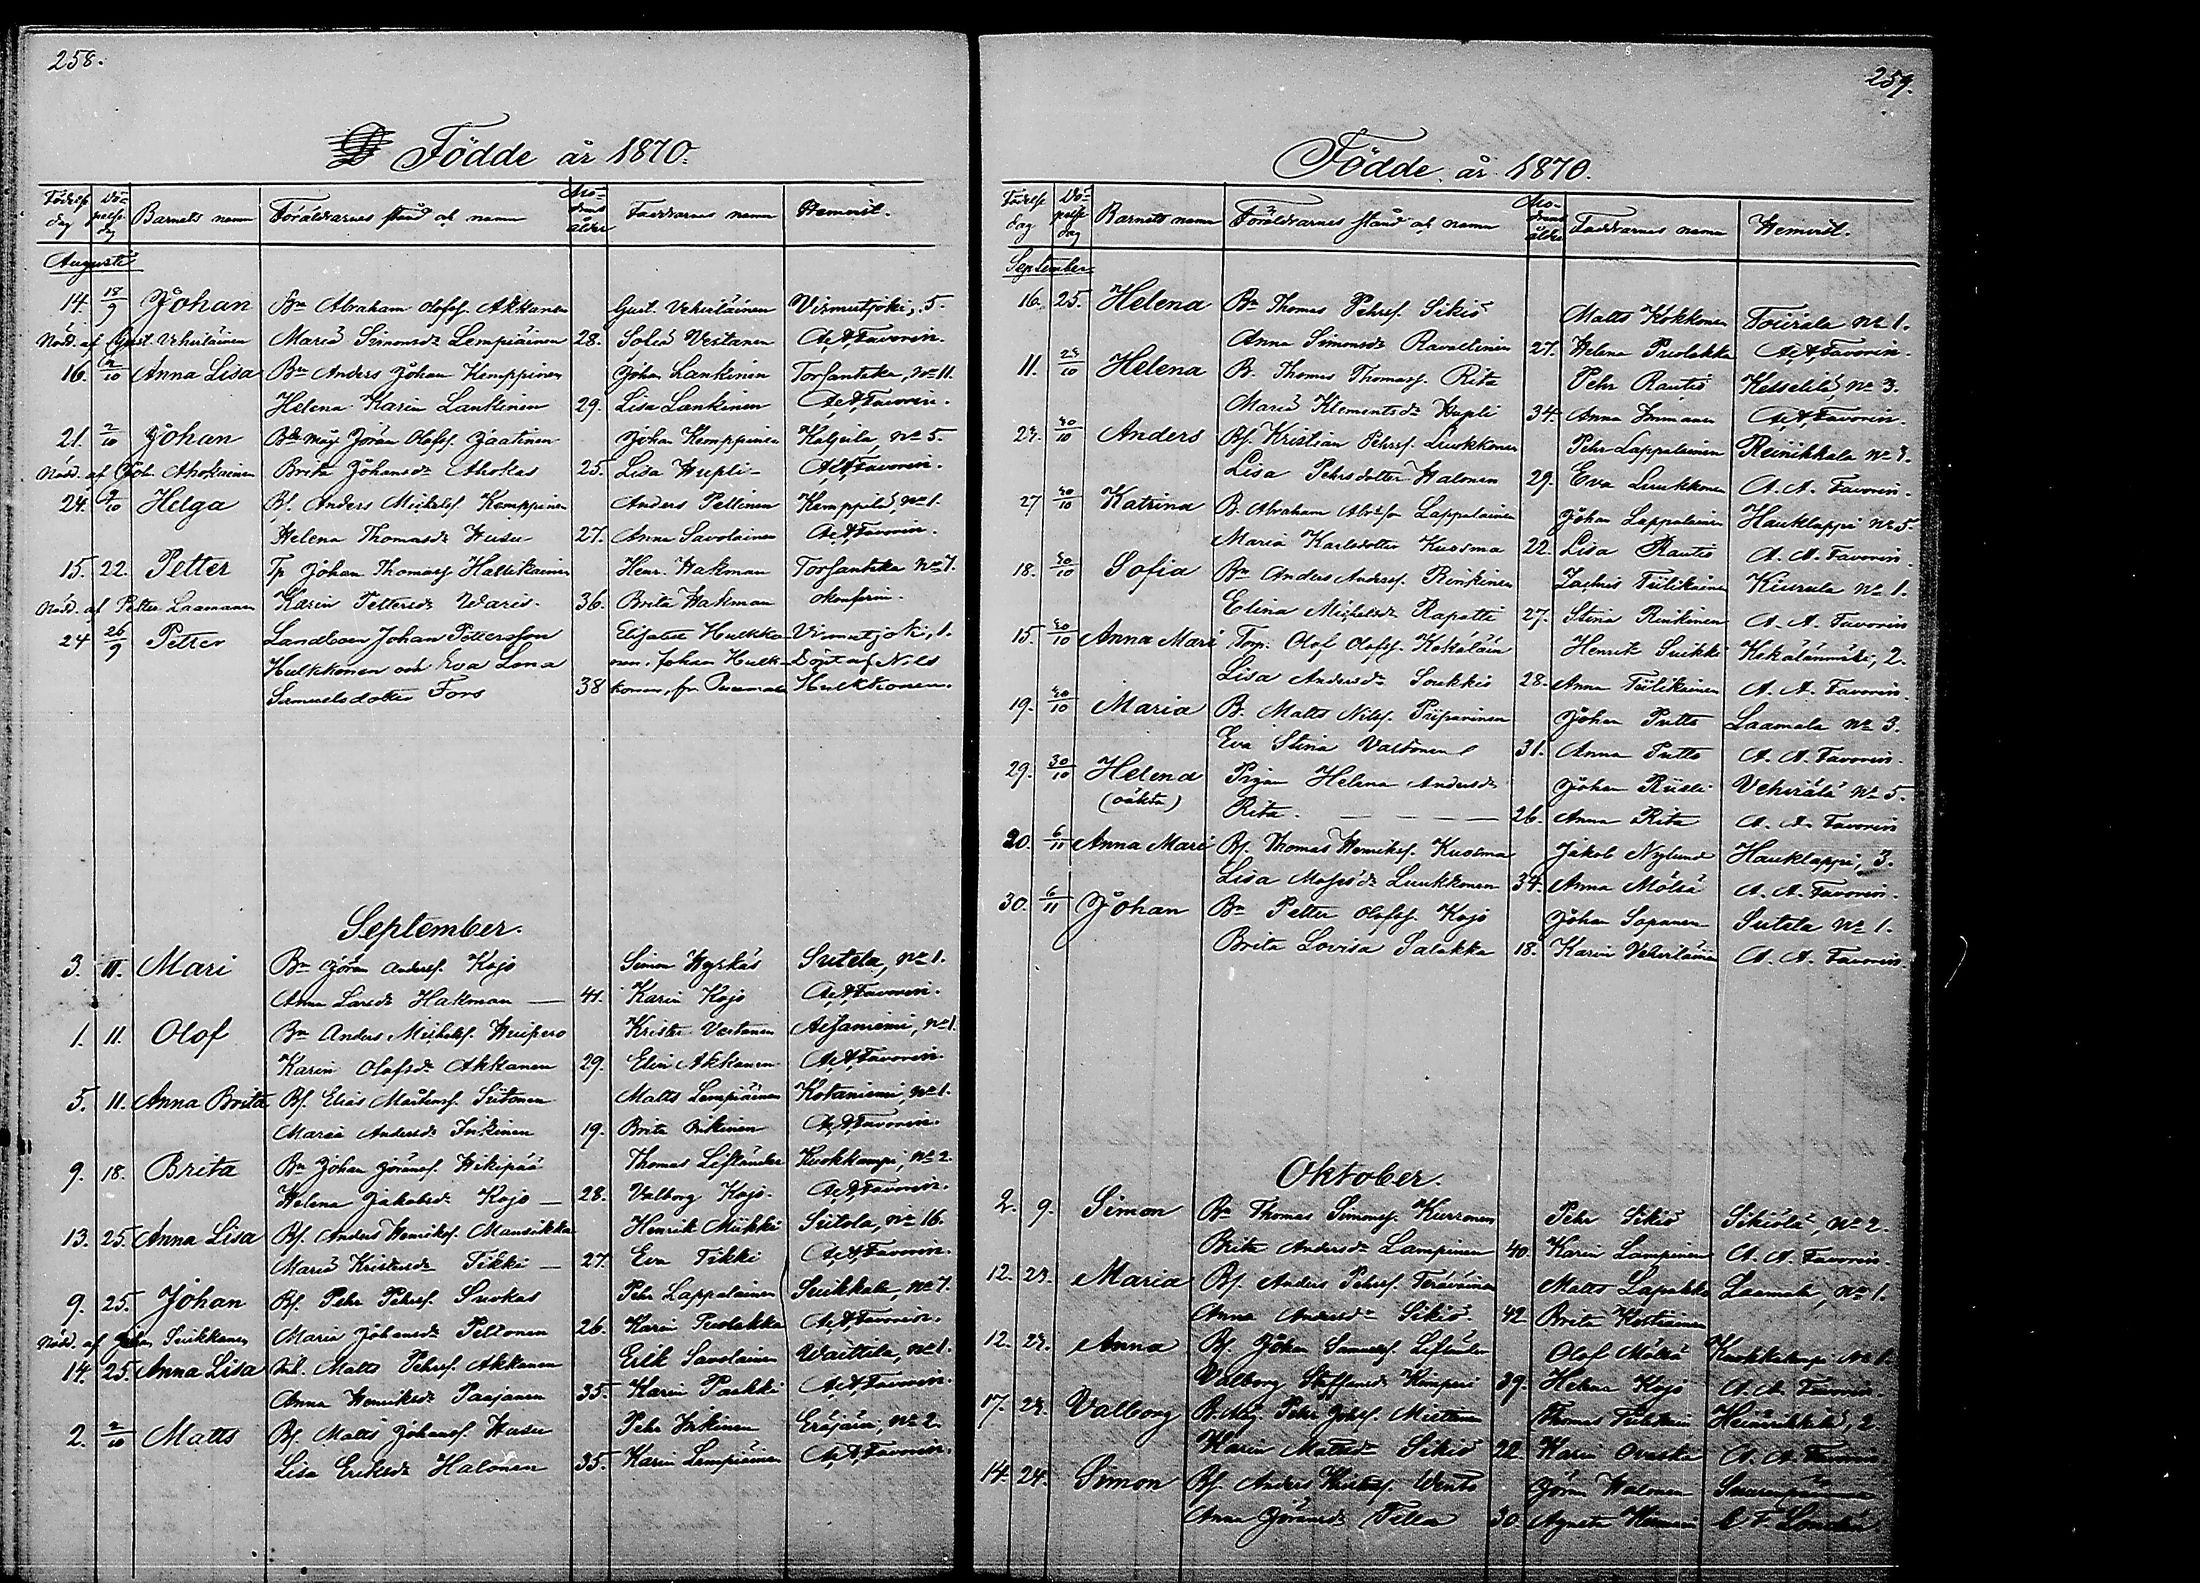 258.
Födde år 1870.
Födelse dag Döpelse dag Barnets namn Föräldrarnes stånd och namn Modrens ålder Faddrarnes namn Hemvist.
Augusti
14. 18/9 Johan Bn Abraham Olofss. Akkanen Gust. Vehviläinen Virmutjoki, 5.
Nöd. af Gust. Vehviläinen Maria Simonsdr Lempiäinen 28. Sofia Vestanen A. A. Favorin.
16. 2/10 Anna Lisa Bn Anders Johan Kemppinen Johan Lankinen Torsantaka, No 11.
Helena Karin Lankinen 29. Lisa Lankinen A. A. Favorin.
21. 2/10 Johan Jöran Olofss. Jaatinen Johan Kemppinen No 5.
Nöd. af Joh. Ahokainen Brita Johansdr Ahokas 25. Lisa Hupli A. A. Favorin.
24. 2/10 Helga Bf. Anders Michelss. Kemppinen Anders Peltinen Kemppilä, No 1.
Helena Thomasdr Husu 27. Anna Savolainen A. A. Favorin.
15. 22. Petter Tp Johan Thomass. Hallikainen Henr. Hakman Torsantaka No 7.
Nöd. af Petter Laamanen Karin Pettersdr Waris. 36. Brita Hakman
24 26/9 Petter Landboen Johan Pettersson Elisabet Hulkko- Virmutjoki, 1.
Hulkkonen och Eva Lena nen, Johan Hulk- Döpt af Nils
Samuelsdotter Fors 38 konen, fr. Hulkkonen.
September.
3. 11. Mari Bn Jöran Anderss. Kojo Simon Hyrkäs Sutela, No 1.
Anna Larsdr Hakman 41. Karin Kojo A. A. Favorin.
1. 11. Olof Bn Anders Michelss. Huipero Krister Vestanen Äijäniemi, No 1.
Karin Olofsdr Akkanen 29. Elin Akkanen A. A. Favorin.
5. 11. Anna Brita Bf. Elias Mårtenss. Siitonen Matts Lempiäinen Kotaniemi, No 1.
Maria Andersdr Inkinen 19. Brita Inkinen A. A. Favorin.
9. 18. Brita Bn Johan Jöranss. Hikipää Thomas Kuokkampi, No 2.
Helena Jakobsdr Kojo 28. Valborg Kojo. A. A. Favorin.
13. 25. Anna Lisa Bf. Anders Henrikss. Mansikka Henrik Miikki Siitola, No 16.
Maria Kristersdr Tikki 27. Eva Tikki A. A. Favorin.
9. 25. Johan Bf. Pehr Pehrss. Suokas Pehr Lappalainen Suikkala, No 7.
Nöd. af Johan Suikkanen Maria Johansdr Peltonen 26. Karin Puolakka A. A. Favorin.
14. 25. Anna Lisa Inh. Matts Pehrss. Akkanen Erik Savolainen Waittila, No 1.
Anna Henriksdr Paajanen 35. Karin Paakki A. A. Favorin.
2. 2/10 Matts Bf. Matts Johanss. Husu Pehr Inkinen Eräjärvi, No 2.
Lisa Eriksdr Halonen 35. Karin Lempiäinen A. A. Favorin.
259.
Födde år 1870.
Födelse dag Döpelse dag Barnets namn Föräldrarnes stånd och namn Modrens ålder Faddrarnes namn Hemvist.
September
16. 25. Helena Bn Thomas Pehrss. Sikiö Matts Kokkonen No 1.
Anna Simonsdr Ravattinen 27. Helena Puolakka A. A. Favorin.
11. 23/10 Helena B. Thomas Thomass. Rita Pehr Rautio Kesselilä, No 3.
Maria Klementsdr Hupli 34. Anna Immanen A. A. Favorin.
23. 30/10 Anders Bf. Kristian Pehrss. Luukkonen Pehr Lappalainen Reinikkala No 7.
Lisa Pehrsdotter Halonen 29. Eva Luukkonen A. A. Favorin.
27 30/10 Katrina B. Abraham Lappalainen Johan Lappalainen Hauklappi No 5.
Maria Karlsdotter Kuosma 22. Lisa Rautio A. A. Favorin.
18. 30/10 Sofia Bn Anders Anderss. Rinkinen Zachris Tiilikainen Kiurula No 1.
Elina Michelsdr Rapatti 27. Stina Rinkinen A. A. Favorin
15. 30/10 Anna Mari Torp. Olof Olofss. Kekäläin Henrik Suikki Kekäläinmäki, 2.
Lisa Andersdr Soukkio 28. Anna Tiilikainen A. A. Favorin.
19. 30/10 Maria B. Matts Nilss. Piiparinen Johan Putto Laamala No 3.
Eva Stina Vartonen 31. Anna Putto A. A. Favorin.
29. 30/10 Helena Pigan Helena Andersdr Johan Riisli Vehviälä No 5.
(oäkta) Rita. — — — 26. Anna Rita A. A. Favorin
20. 6/11 Anna Mari Bf. Thomas Henrikss. Kuosma Jakob Nylund Hauklappi, 3.
Lisa Mosesdr Luukkonen 34. Anna Mölsä A. A. Favorin.
30. 6/11 Johan Bn Petter Olofss. Kojo Johan Soranen Sutela No 1.
Brita Lovisa Salakka 18. Karin Vehviläinen A. A. Favorin.
Oktober.
2. 9. Simon Bn Thomas Simonss. Kurronen Pehr Sikiö Sikiölä, No 2.
Brita Andersdr Lampinen 40. Karin Lampinen A. A. Favorin.
12. 23. Maria Bf. Anders Pehrss. Teräväinen Matts Lapakko Laamala, No 1.
Anna Andersdr Sikiö. 42 Brita Kostiainen
12. 23. Anna Bf. Johan Samuelss. Olof Mölsä Kuokkalampi No 1.
Valborg Staffansdr Kimpari 39. Helena Kojo A. A. Favorin.
17. 23. Valborg Pehr Johss. Miettinen Thomas 2
Karin Mattsdr Sikiö 22 Karin Ovaska A. A. Favorin.
14. 24. Simon Bf. Anders Wento Jöran Halonen
Anna Jöransdr Tella 30 Agneta